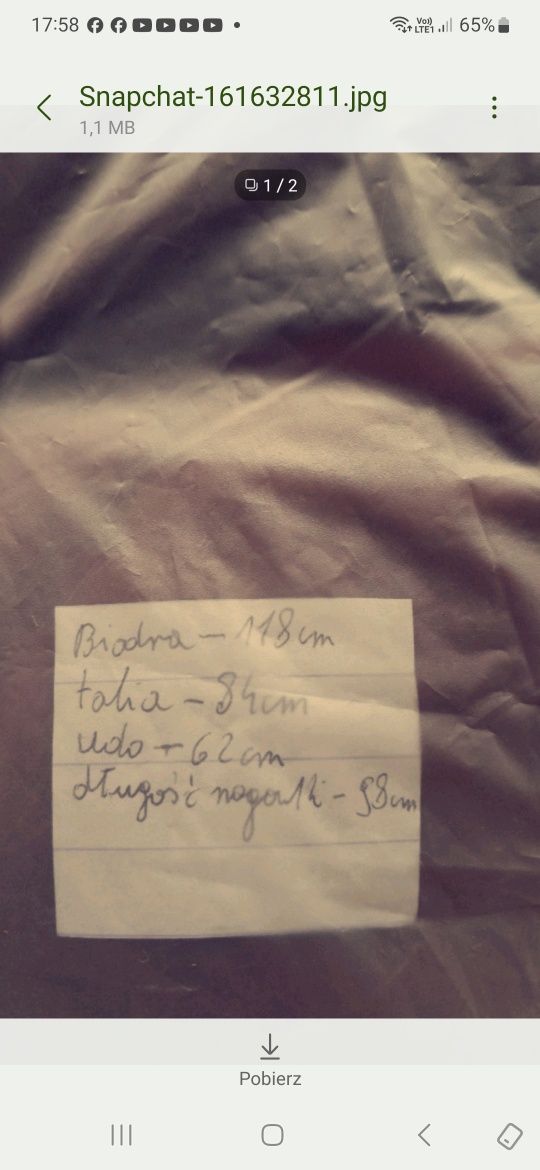 17:58
Vo))
LTE1
65%
Snapchat-161632811.jpg
1,1 MB
1 / 2
Biodra - 118 cm
talia - 84cm
udo - 62 cm
długość nogawki - 98cm
Pobierz